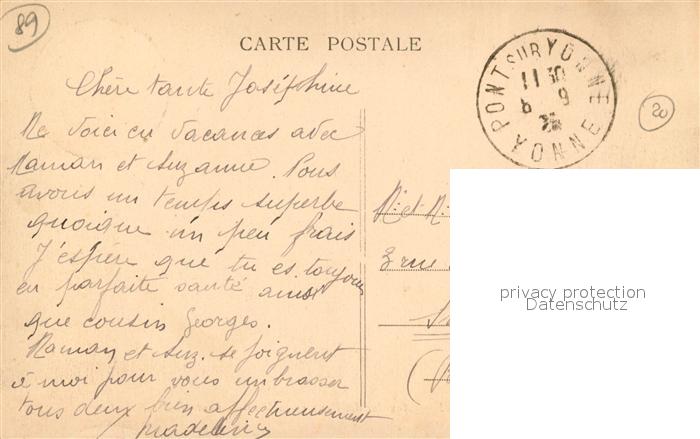 89
CARTE POSTALE
PONT SUR YONNE
11 30
6 9
YONNE
20
Chère tante Joséphine
Me voici en vacances avec
Maman et Suzanne. Nous
avons un temps superbe
quoique un peu frais
J'espère que tu es toujours
en parfaite santé ainsi
que cousin Georges.
Maman et Suz. se joignent
à moi pour vous embrasser
tous deux bien affectueusement
Madeleine
M. et M.
3 rue
privacy protection
Datenschutz